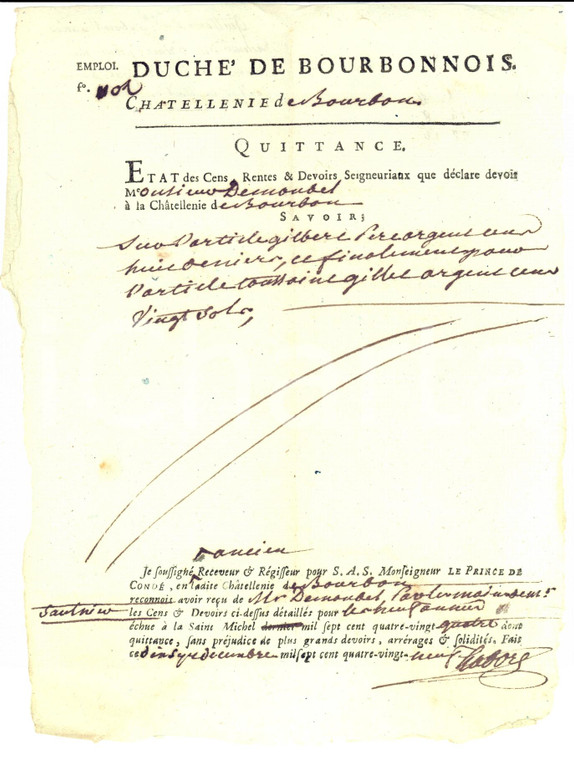 EMPLOI. DUCHÉ DE BOURBONNOIS.
f°.
CHATELLENIE de Bourbon
QUITTANCE.
ETAT des Cens, Rentes & Devoirs Seigneuriaux que déclare devoir
Monsieur Demoubet
à la Châtellenie de Bourbon
SAVOIR;
Sur l'article gilbert Pere argent
huit deniers, et finalement pour
l'article toussaint gillet argent
Vingt Sols,
ancien
Je soussigné, Receveur & Régisseur pour S. A. S. Monseigneur LE PRINCE DE
CONDÉ, en ladite Châtellenie de Bourbon
reconnois avoir reçu de Mr Demoubet, Par les mains de
les Cens & Devoirs ci-dessus détaillés pour
échue à la Saint Michel dernier mil sept cent quatre-vingt quatre dont
quittance, sans préjudice de plus grands devoirs, arrérages & solidités. Fait
ce decembre mil sept cent quatre-vingt neuf